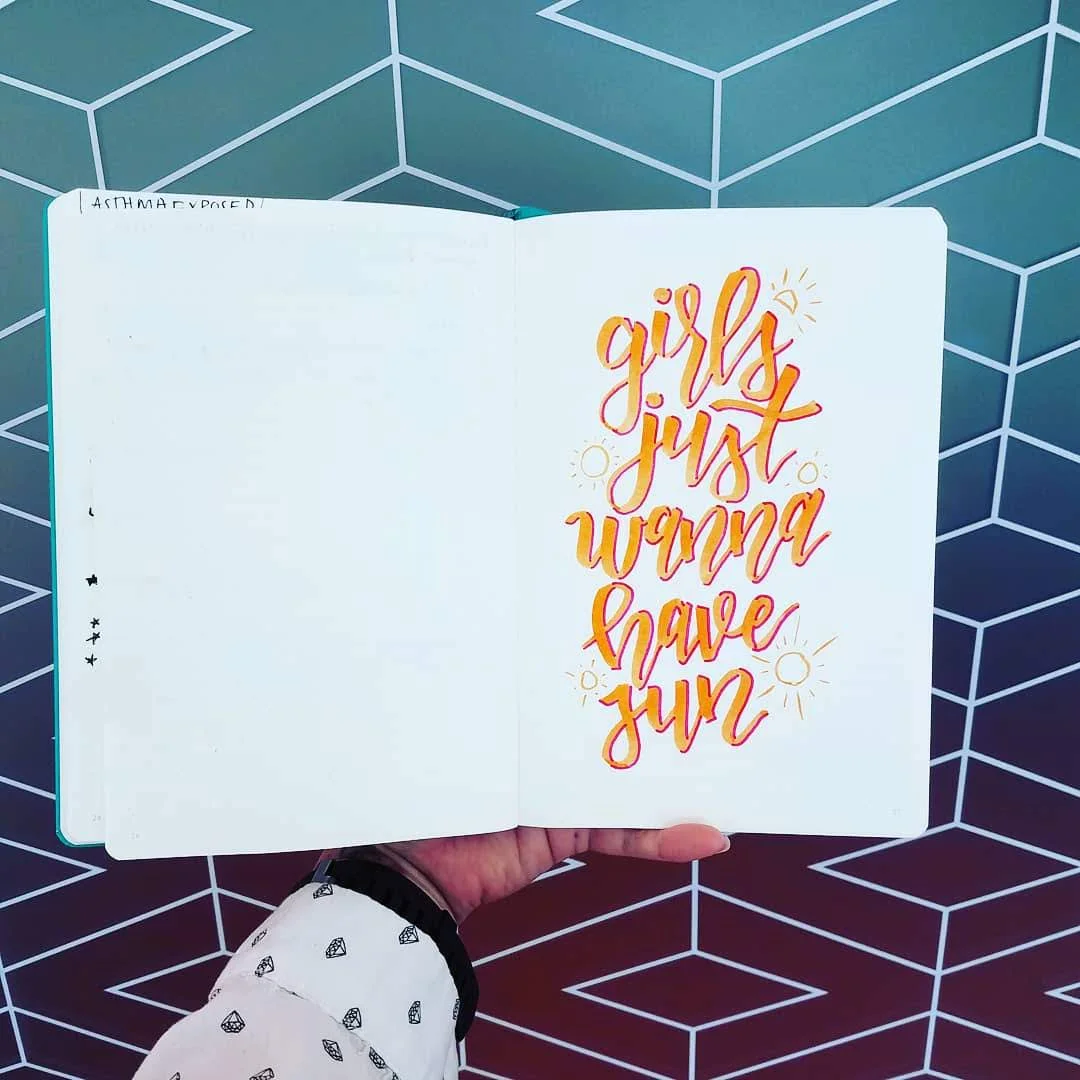 ASTHMA EXPOSED
girls
just
wanna
have
fun